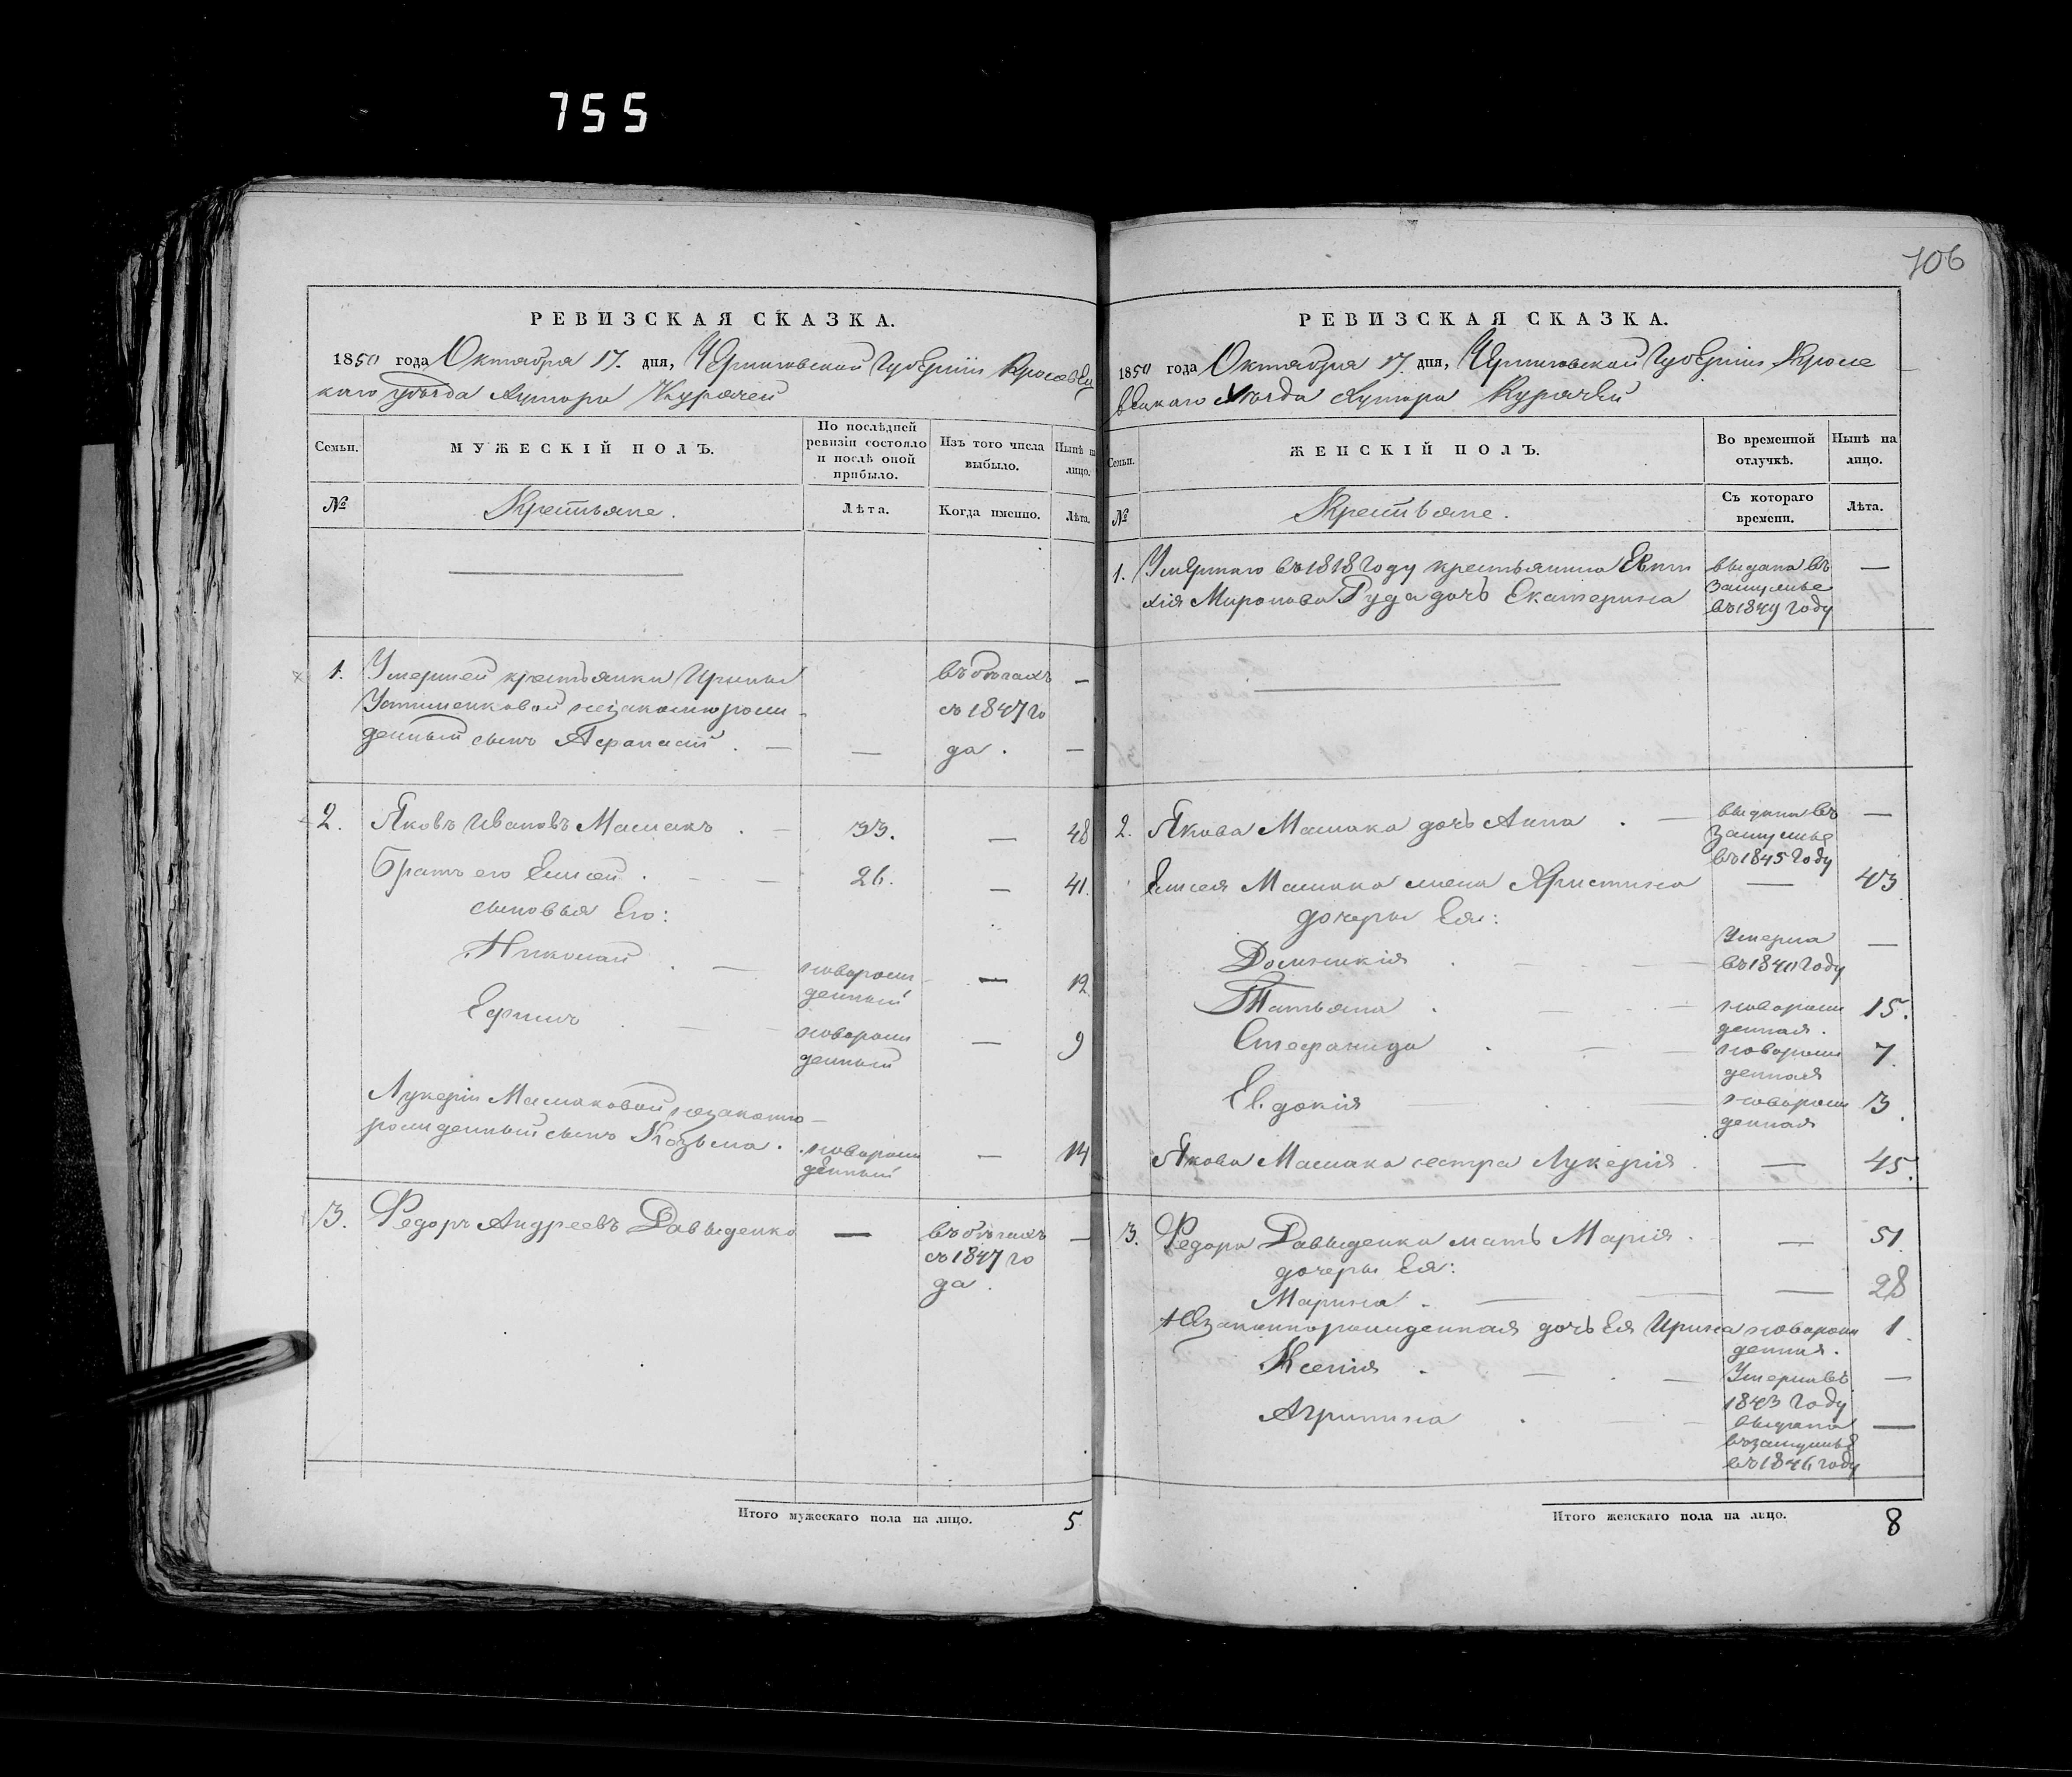 755
106
РЕВИЗСКАЯ СКАЗКА.
1850 года Октября 17. дня, Черниговской Губерніи Кролевец
каго уѣзда Хутора Курачей
Семьи.
МУЖЕСКІЙ ПОЛЪ.
По послѣдней
ревизіи состояло
и послѣ оной
прибыло.
Изъ того числа
выбыло.
Нынѣ на
лицо.
№
Крестьяне.
Лѣта.
Когда именно.
Лѣта.
1. Умершей крестьянки Ирины въ бѣгахъ —
незаконорож съ 1847 го
денный сынъ Афанасій . — — да . —
2. Яковъ Ивановъ Машакъ . — 33. — 48
Братъ его Елисей . — — 26. — 41.
сыновья Его:
Николай . — новорож — 12
денный
Ефимъ . — новорож — 9
денный
Лукеріи Машаковой незаконно
рожденный сынъ Козьма . новорож — 14
денный
3. Федоръ Андреевъ Давыденко — въ бѣгахъ —
съ 1847 го
да .
Итого мужескаго пола на лицо. 5
РЕВИЗСКАЯ СКАЗКА.
1850 года Октября 17. дня, Черниговской Губерніи Кроле
вецкаго уѣзда Хутора Курачей
Семьи.
ЖЕНСКІЙ ПОЛЪ.
Во временной
отлучкѣ.
Нынѣ на
лицо.
№
Крестьяне.
Съ котораго
времени.
Лѣта.
1. Умершаго въ 1818 Году крестьянина Евти выдана въ —
хія Миронова Руда дочь Екатерина замужье
въ 1849 Году
2. Якова Машака дочь Анна . — выдана въ —
замужье
въ 1845 Году
Елисея Машака жена Христина — 43
дочери Ея:
Домникія . — Умерла —
въ 1840 Году
Татьяна . — новорож 15.
денная .
Стефанида . — новорож 7.
денная
Евдокія — новорож 3.
денная
Якова Машака сестра Лукерія . — 45.
3. Федора Давыденка мать Марія . — 51
дочери Ея:
Марина . — — 28
Незаконнорожденная дочь Ея Ирина новорож 1.
денная .
Ксенія . — . — Умерла въ —
1843 Году
Агрипина . — выдана —
въ замужье
въ 1846 году
Итого женскаго пола на лицо. 8